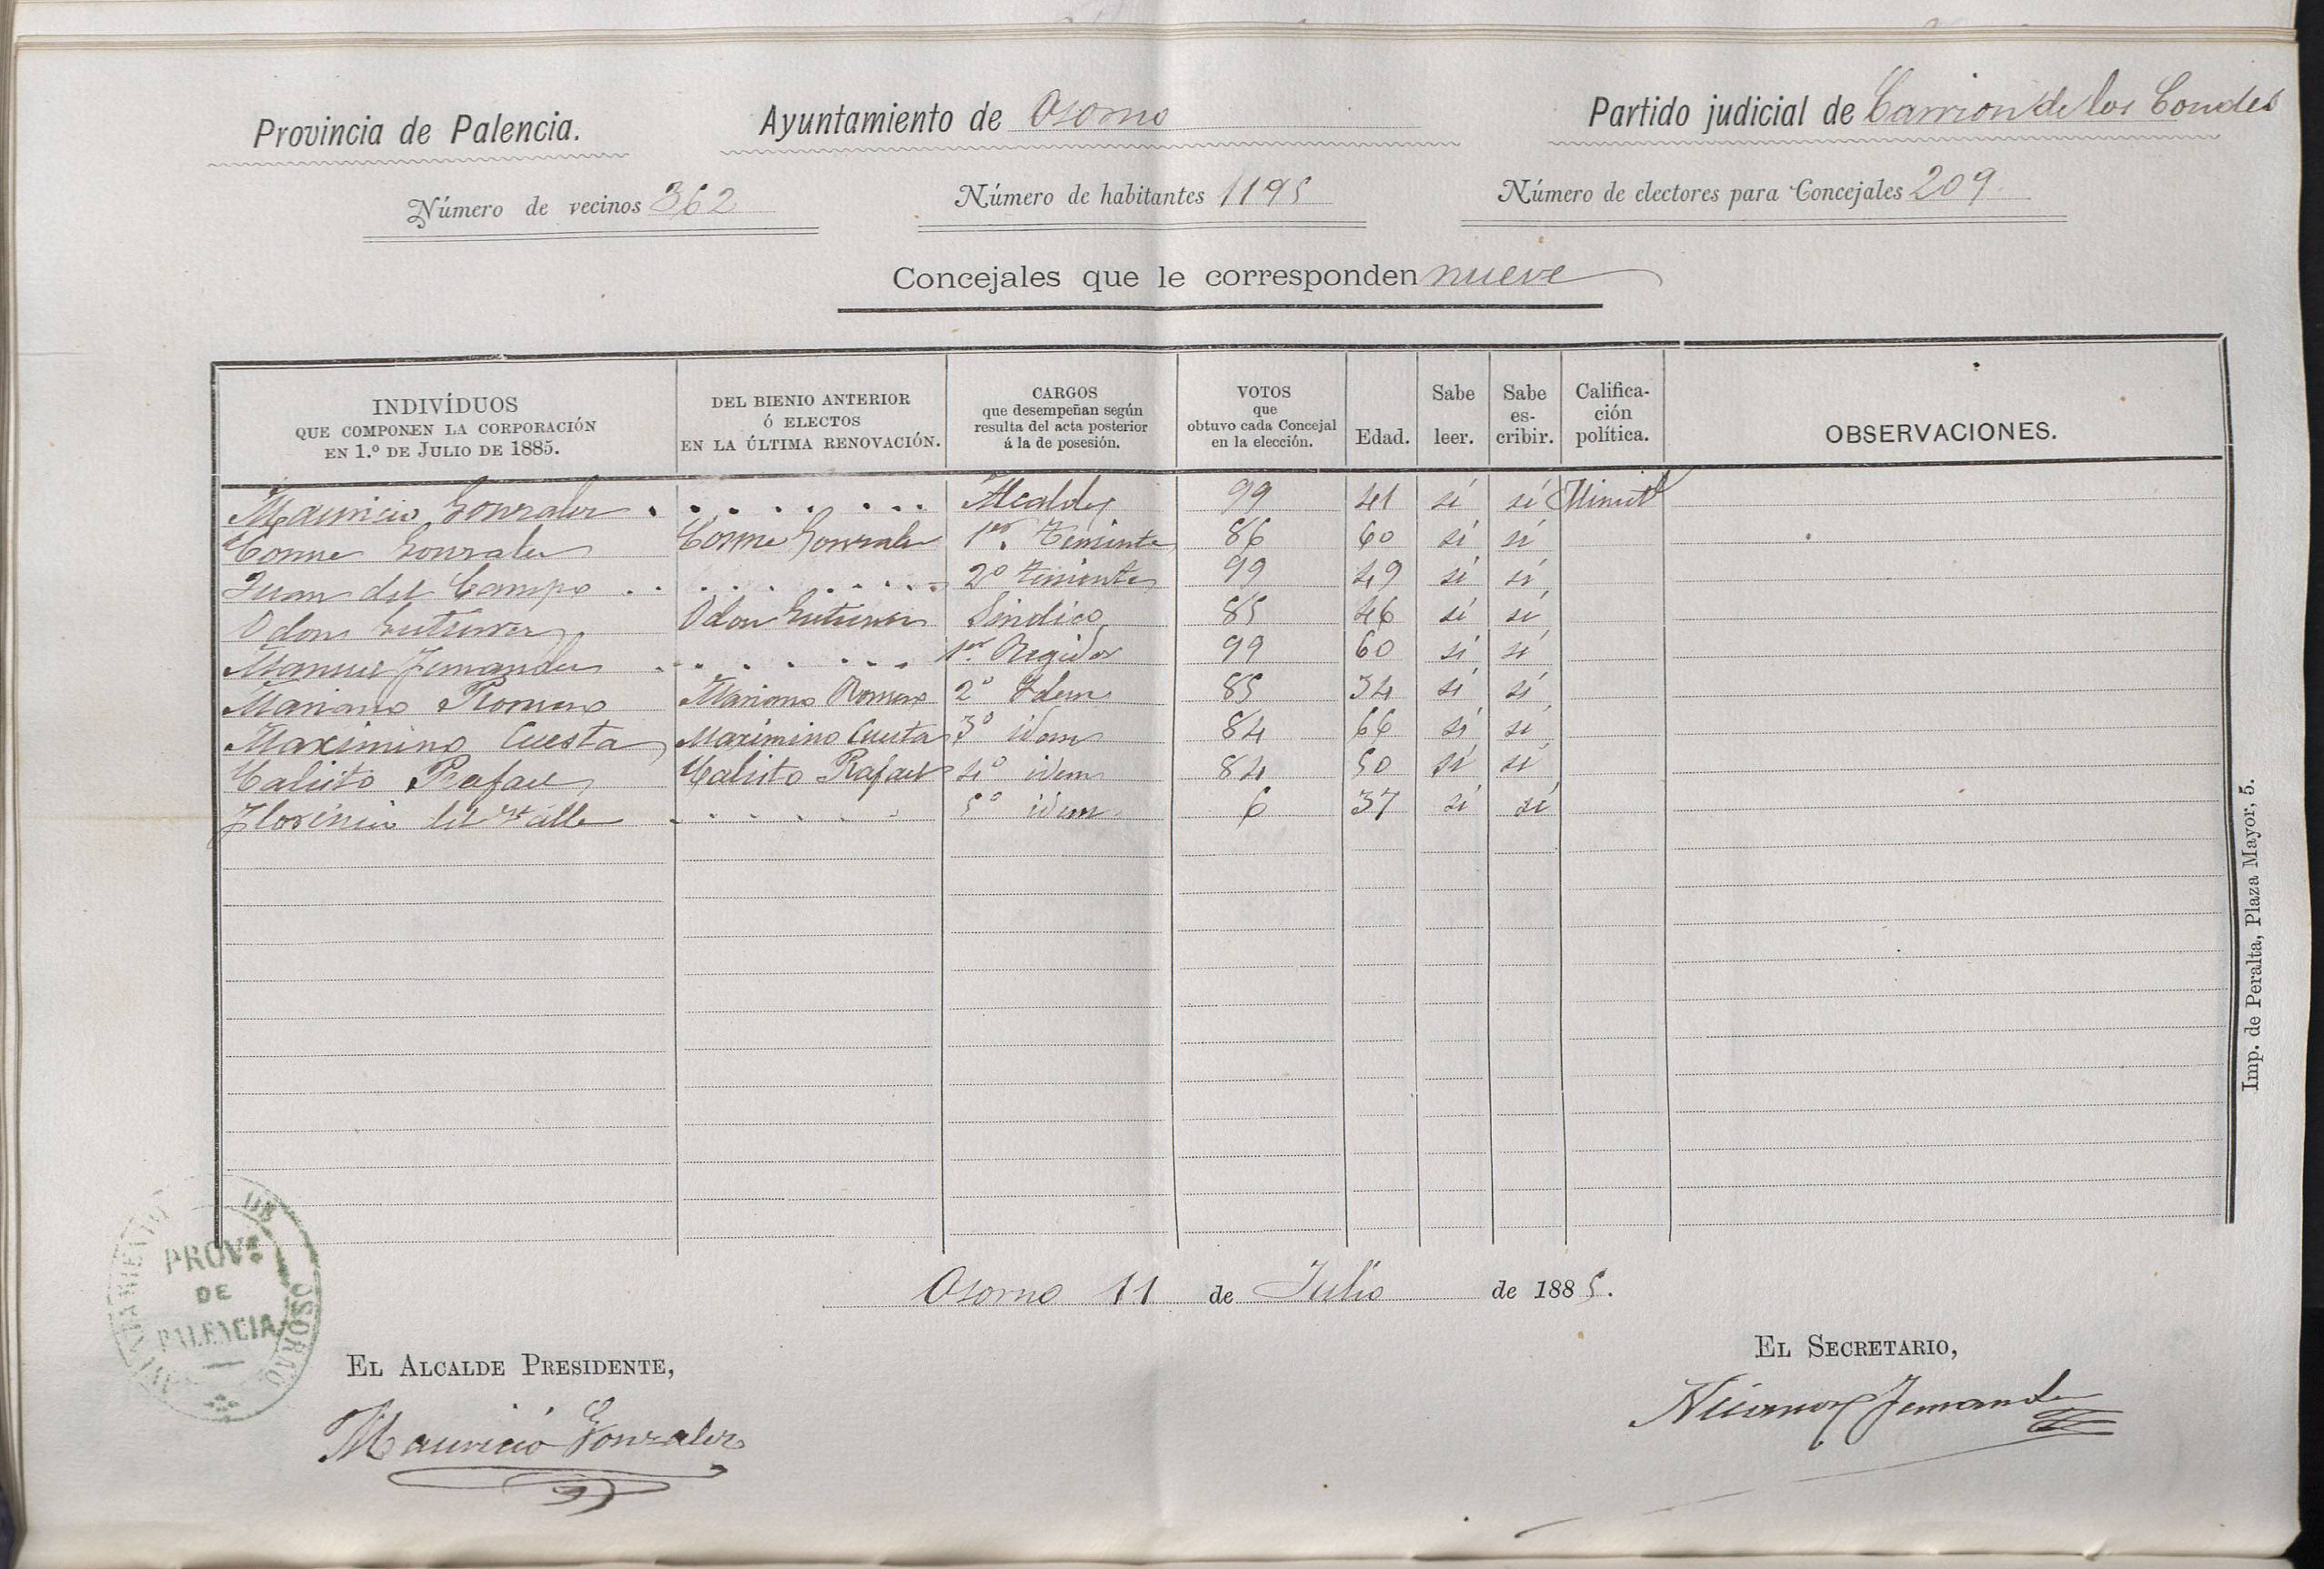 Provincia de Palencia. Ayuntamiento de Osorno Partido judicial de Carrion de los Condes
Número de vecinos 362 Número de habitantes 1195 Número de electores para Concejales 209
Concejales que le corresponden nueve
INDIVÍDUOS QUE COMPONEN LA CORPORACIÓN EN 1.º DE JULIO DE 1885. DEL BIENIO ANTERIOR Ó ELECTOS EN LA ÚLTIMA RENOVACIÓN. CARGOS que desempeñan según resulta del acta posterior á la de posesión. VOTOS que obtuvo cada Concejal en la elección. Edad. Sabe leer. Sabe es-cribir. Califica-ción política. OBSERVACIONES.
Mauricio Gonzalez . . . . . . . . Alcalde 99 41 sí sí Minist
Cosme Gonzalez Cosme Gonzalez 1er. Teniente 86 60 sí sí
Juan del Campo . . . . . . . . . 2º teniente 99 49 sí sí
Odon Gutierrez Odon Gutierrez Sindico 85 46 sí sí
Manuel Fernandez . . . . . . . . 1er. Regidor 99 60 sí sí
Mariano Romero Mariano Romero 2º Idem 85 34 sí sí
Maximino Cuesta Maximino Cuesta 3º idem 84 66 sí sí
Calisto Rafael Calisto Rafael 4º idem 84 50 sí sí
Florencio del Valle . . . . . . . 5º idem 6 37 sí sí
Imp. de Peralta, Plaza Mayor, 5.
Osorno 11 de Julio de 1885.
AYUNTAMIENTO DE OSORNO
PROVª
DE
PALENCIA
EL ALCALDE PRESIDENTE,
Mauricio Gonzalez
EL SECRETARIO,
Nicanor Fernandez